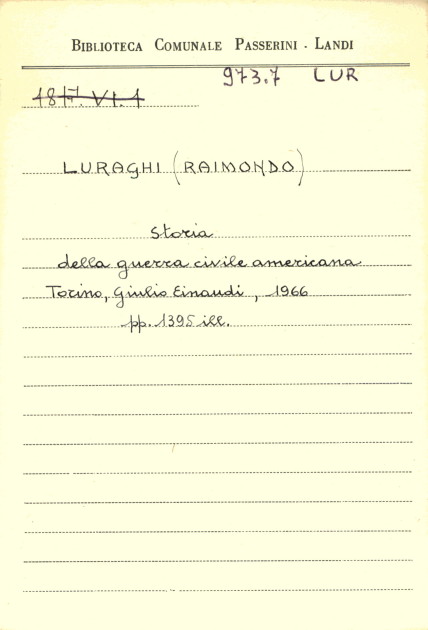 BIBLIOTECA COMUNALE PASSERINI - LANDI
973.7 LUR
LURAGHI (RAIMONDO)
Storia
della guerra civile americana
Torino, Giulio Einaudi, 1966
pp. 1395 ill.